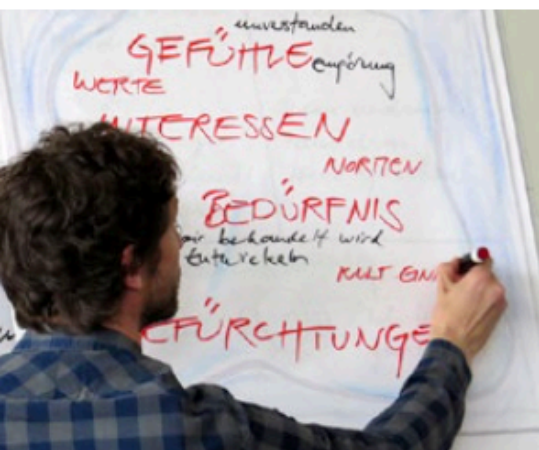 unverstanden
GEFÜHLE
empörung
WERTE
INTERESSEN
NORMEN
BEDÜRFNIS
fair behandelt wird
Entwickeln
KULT EIN
EFÜRCHTUNGE